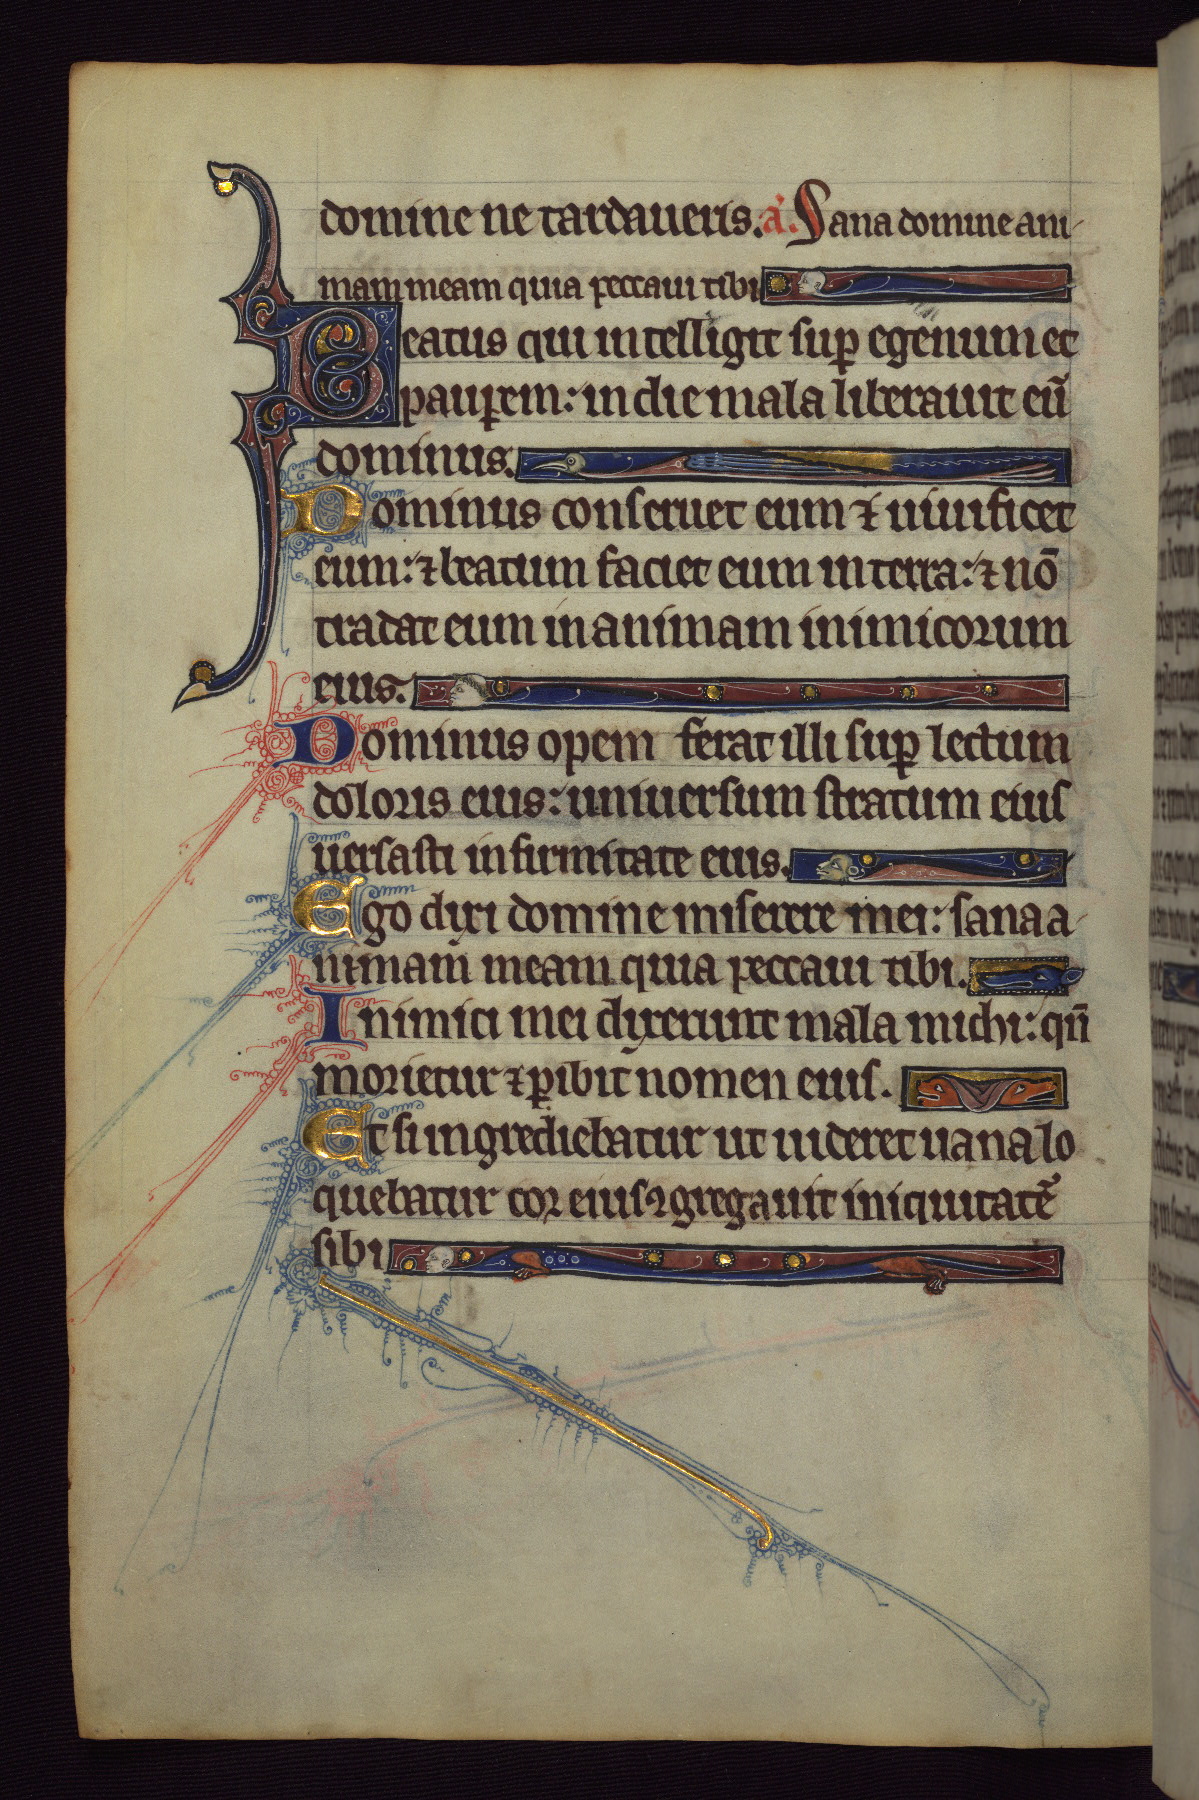 domine ne tardaueris. a. Sana domine ani
mam meam quia peccaui tibi
Beatus qui intelligit sup egenum et
paupem: in die mala liberauit eū
dominus.
Dominus conseruet eum ⁊ uiuificet
eum: ⁊ beatum faciet eum in terra: ⁊ nō
tradat eum in animam inimicorum
eius.
Dominus opem ferat illi sup lectum
doloris eius: uniuersum stratum eius
uersasti in firmitate eius.
Ego dixi domine miserere mei: sana a
nimam meam quia peccaui tibi.
Inimici mei dixerunt mala michi: qn̄
morietur ⁊ pibit nomen eius.
Et si ingrediebatur ut uideret uana lo
quebatur cor eius ꝯgregauit iniquitatē
sibi